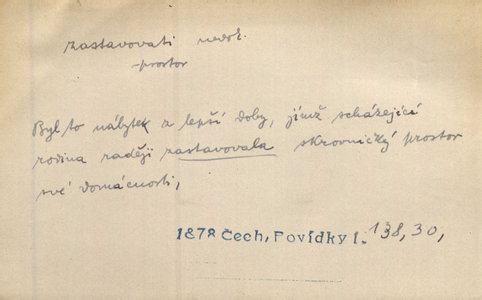 zastavovati nedok.
-prostor
Byl to nábytek z lepší doby, jímž scházející
rodina raději zastavovala skrovničký prostor
své domácnosti,
1878 Čech, Povídky I. 138,30,